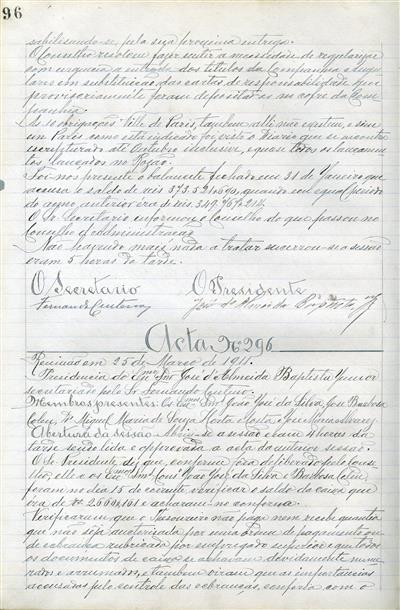 96
sabilisando-se pela sua proxima entrega.
O Conselho resolveu fazer sentir a necessidade de regularizar
com urgencia a entrada dos titulos da Companhia e
em substituição das cartas de responsabilidade que
provisoriamente foram depositadas no cofre da Com-
panhia.
As obrigações Ville de Paris, tambem alli não existem, e sim
em Paris como está indicado foi visto o Diario que se encontra
escripturado até Outubro inclusive, e quasi todos os lançamen-
tos, lançados no Razão.
Foi-nos presente o balancete fechado em 31 de Janeiro que
accusa o saldo de reis quando em egual periodo
do anno anterior era de reis
O Sr. Secretario informou o Conselho do que passou no
Conselho d'administração
Não havendo mais nada a tratar encerrou-se a sessão
eram 5 horas da tarde.
O Secretario O Presidente
José d'Almeida Baptista Jr
Acta Nº 296
Reunião em 25 de Março de 1911.
Presidencia do Exmo Snr José d'Almeida Baptista Junior
secretariado pelo Sr Fernando
Membros presentes: Os Exmos Snrs João José da Silva, José Barbosa
Colen, Dr Miguel Maria de Souza Horta e Costa, José Maria
Abertura da sessão - Abriu-se a sessão eram 4 horas da
tarde sendo lida e approvada a acta da anterior sessão.
O Sr. Presidente, diz que, conforme fôra deliberado pelo Conse-
lho, elle e os Exmos Snrs João José da Silva e Barbosa Colen,
foram no dia 15 do corrente verificar o saldo da caixa que
éra de e acharam-no conforme.
Verificaram que o Thesoureiro não paga nem recebe quantia
que não seja auctorisada por uma ordem de pagamento ou
de cobrança rubricada por empregado superior e que todos
os documentos de caixa se achavam devidamente nume-
rados e arrumados, e tambem viram que as importancias
accusadas pelo controle das cobranças, conferia com o